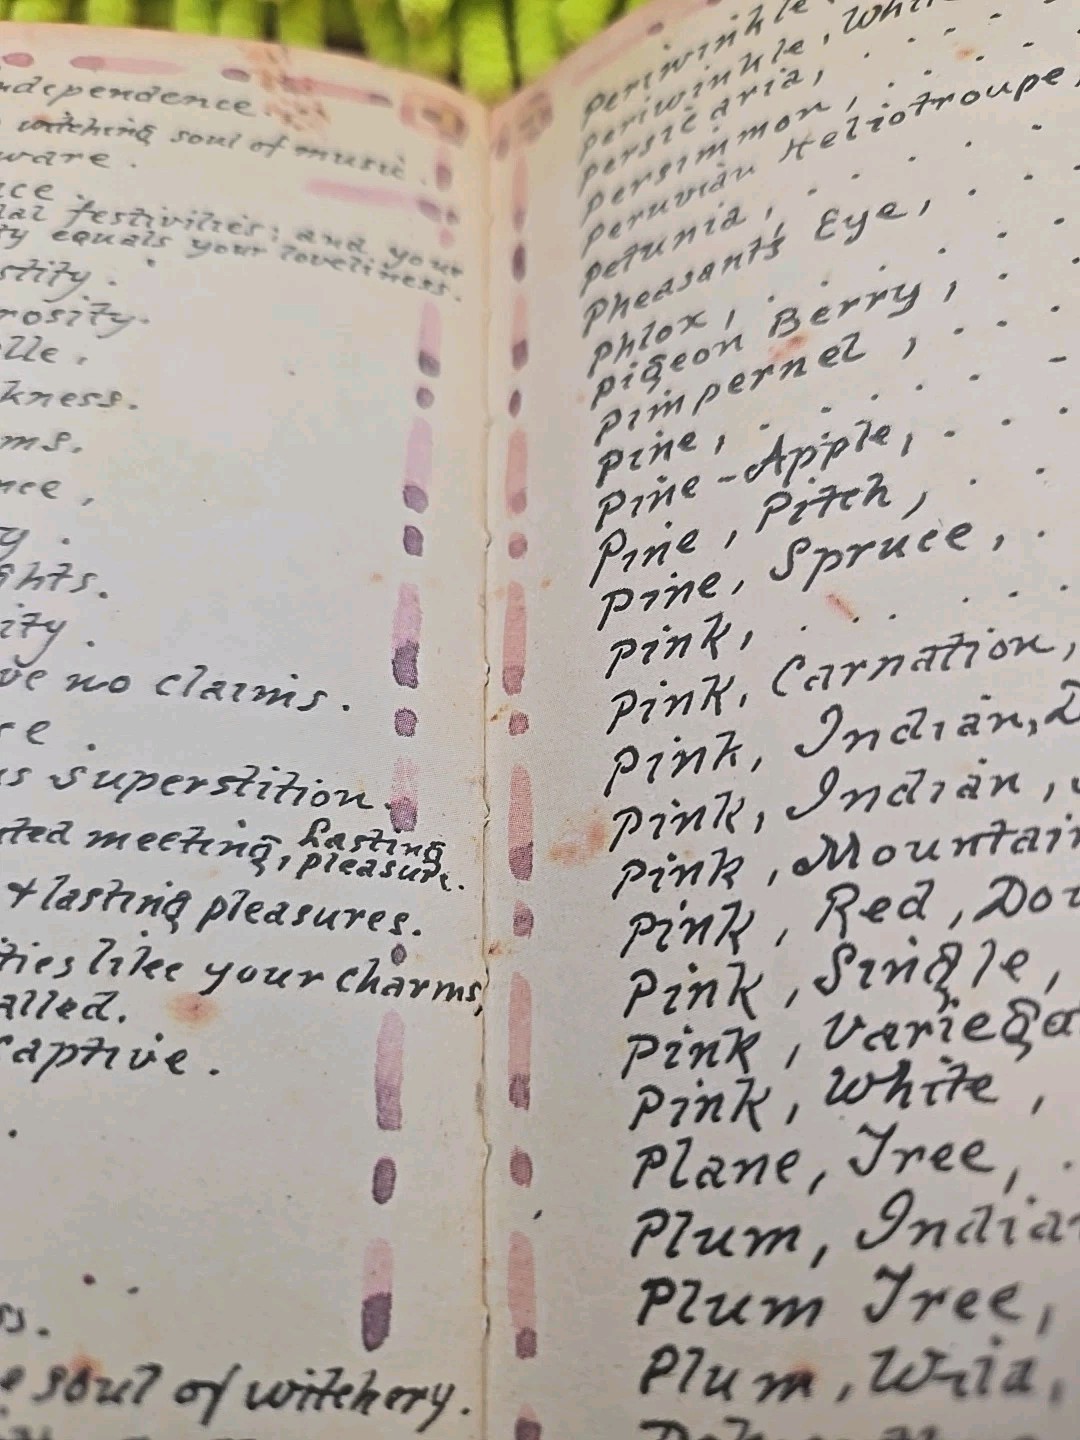 independence.
witching soul of music.
ware.
nce.
festivities; and your
equals your loveliness.
stity.
rosity.
elle.
kness.
ms.
nce,
y.
ghts.
ity.
ve no claims.
ce.
us superstition.
ted meeting, lasting
pleasure.
+ lasting pleasures.
ties like your charms,
alled.
Captive.
ss.
e soul of witchery.
Periwinkle
Periwinkle, Whi
Persicaria,
Persimmon,
Peruvian Heliotroupe,
Petunia,
Pheasants Eye,
Phlox,
Pigeon Berry,
Pimpernel,
Pine,
Pine-Apple,
Pine, Pitch,
Pine, Spruce,
Pink,
Pink, Carnation,
Pink, Indian, D
Pink, Indian,
Pink, Mountain
Pink, Red, Dou
Pink, Single,
Pink, Variega
Pink, White,
Plane, Tree,
Plum, Indian
Plum Tree,
Plum, Wild,